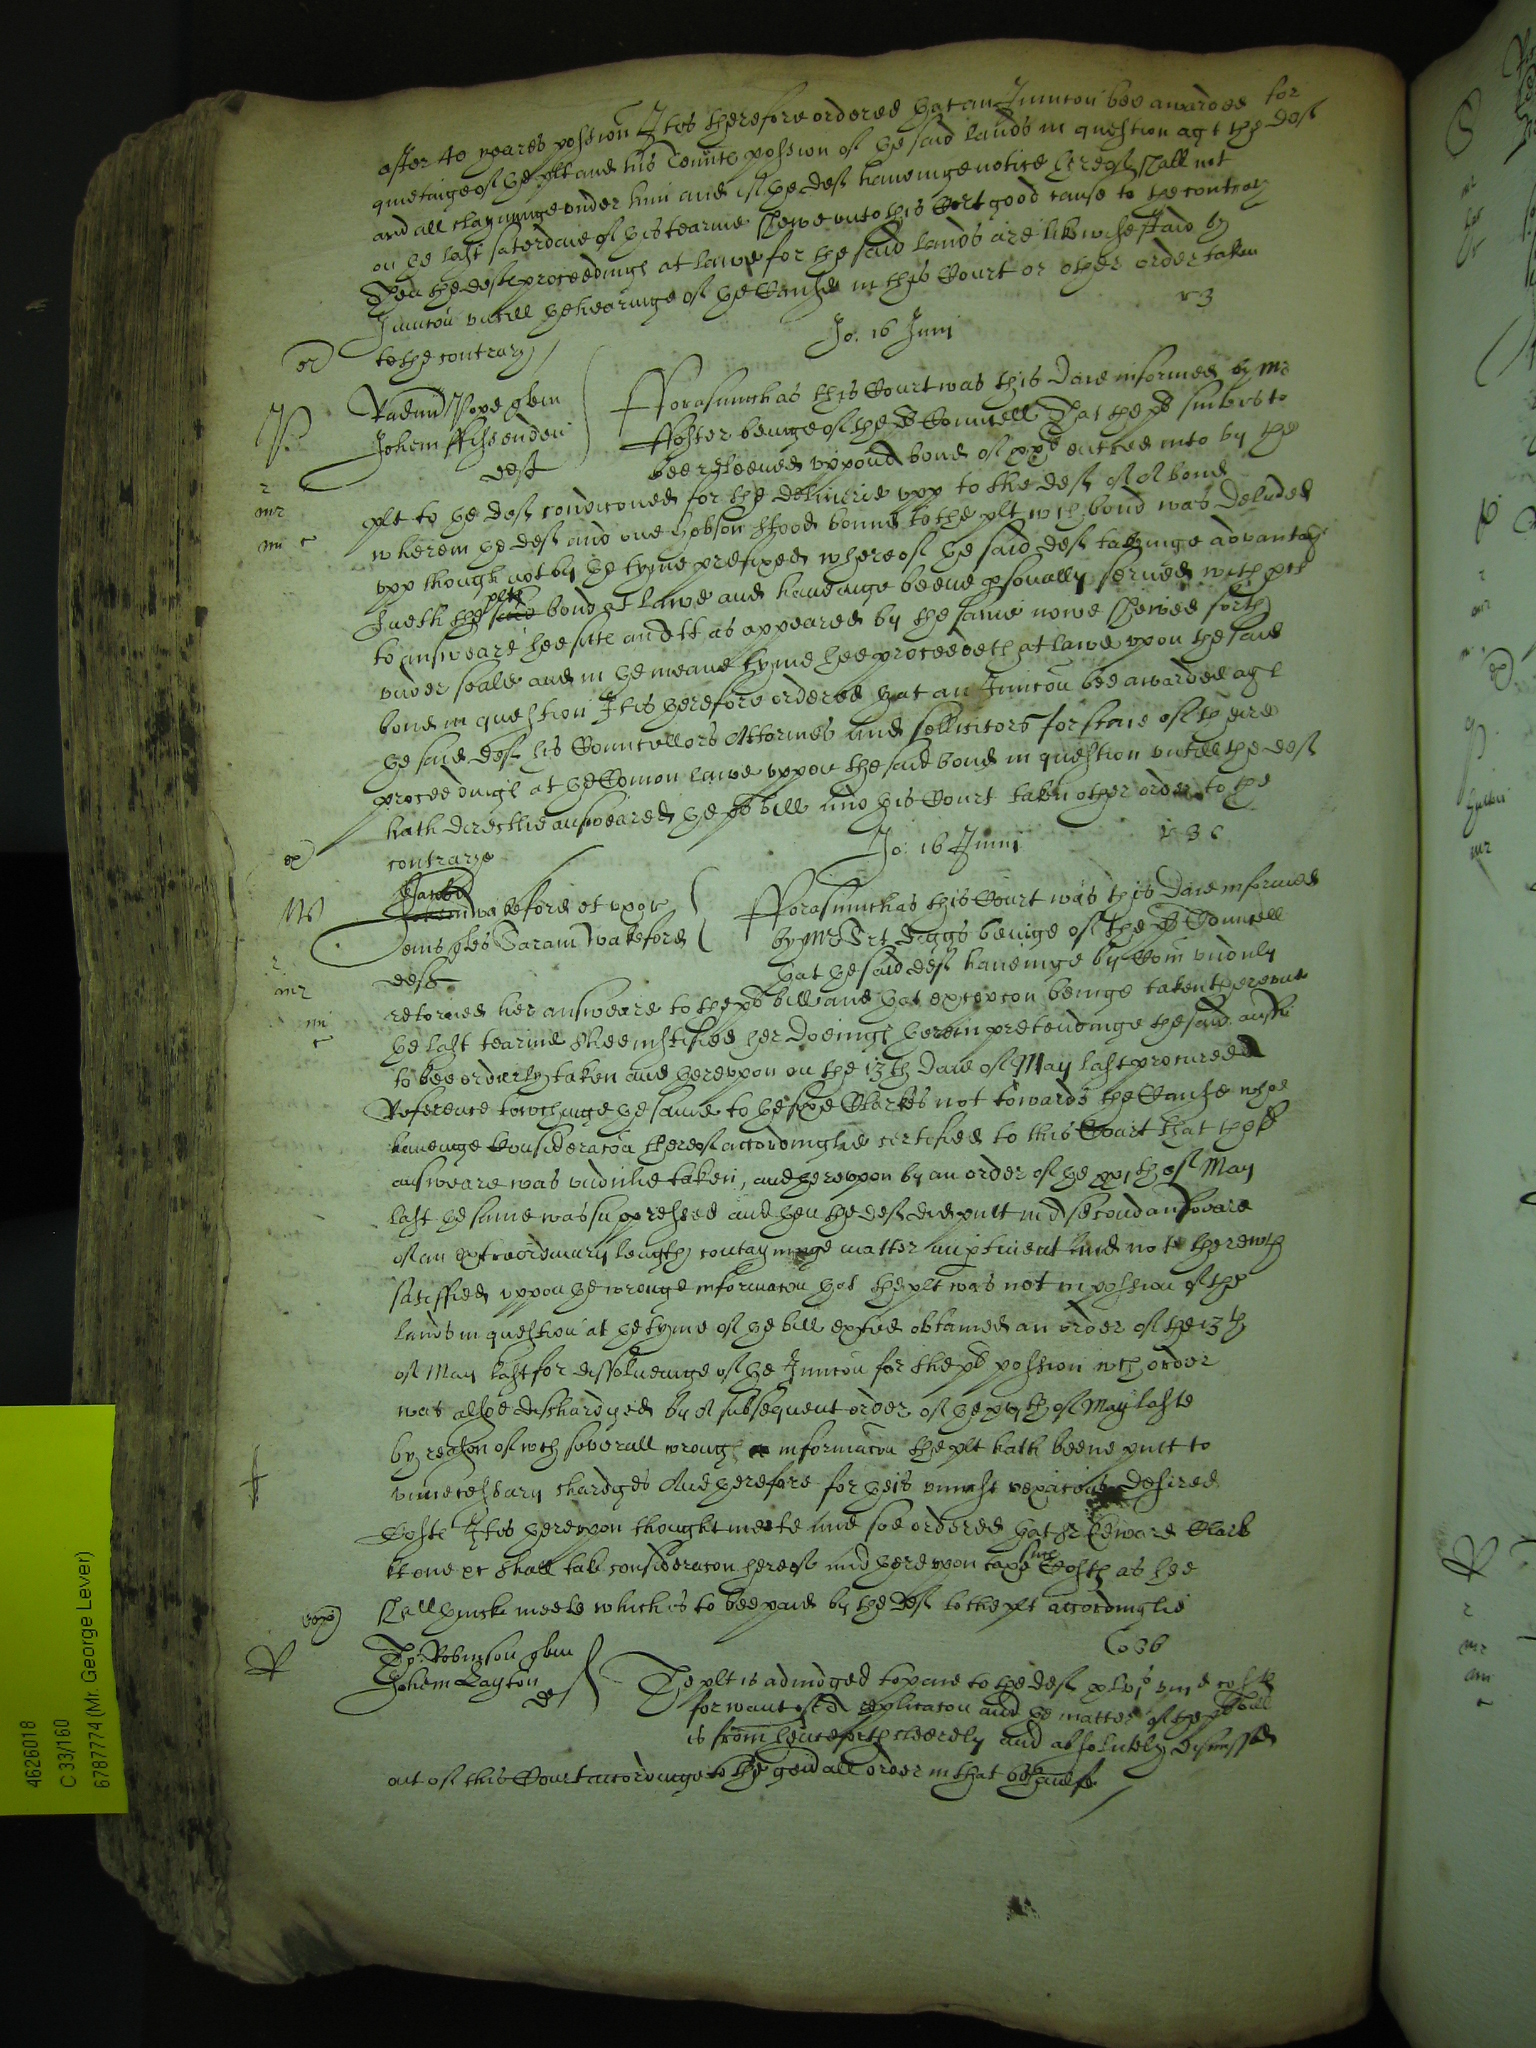 after 40 yeares possion It is therefore ordered that an Iniunccon bee awarded for
quietinge of the plt and his Tennts possion of the said lands in question agt the deft
and all clayminge under him and if the deft haveinge notice hereof shall not
on the last saterdaie of this tearme shewe unto this Cort good cause to the contrary
Then the defts proceedings at lawe for the said lands are likewise staid by
Iniunccon untill the hearinge of the Cause in this Court or other order taken
to the contrary
Jo. 16 Junij
Radus Pope gen
Johem ffishenden
deft
Forasmuch as this Court was this daie informed by Mr
Foster beinge of the pls Councell That the pl seekes to
bee releeved uppon a bond of entred into by the
plt to the deft condiconed for the deliverie upp to the deft of a bond
wherein the deft and one Hobson stood bound to the plt wch bond was delivered
upp though not by the tyme prefixed whereof the said deft takeinge advantage
Sueth the said plts bond at lawe and haveinge beene psonally served with pces
to answeare hee sitts an Att as appeared by the same nowe shewed forth
under seale and in the meane tyme hee proceedeth at lawe upon the said
bond in question It is therefore ordered that an Iniunccon bee awarded agt
the said deft his Councellors Attornies and sollicitors for staie of theire
proceedings at the Comon lawe uppon the said bond in question untill the deft
hath directlie answeared the pls bill and this Court taken other order to the
contrarye
Jo: 16 Junij
Jacobus
wakeford et uxor
Sara wakeford
deft
Forasmuch as this Court was this daie informed
by Mr Sergt Diggs beinge of the pls Councell
that the said deft haveinge by Com unduly
retorned her answeare to the pls bill and that excepcon beinge taken thereunto
the last tearme Shee iustified her doeings therein pretendinge the said answ
to bee orderly taken and thereupon on the 13th daie of May last procured a
Reference towchinge the same to the sixe Clerkes not towards the Cause whoe
haveinge Consideracon thereof accordinglie certified to this Court that the sd
answeare was undulie taken, and thereupon by an order of the xxjth of May
last the same was suppressed and then the deft did putt in a second answeare
of an extreordinary length contayninge matter impertinent and not therewth
satisffied uppon the wronge informacon that the plt was not in possion of the
lands in question at the tyme of the bill exhited obtained an order of the 13th
of May last for dissolveinge of the Iniunccon for the pls possion wch order
was alsoe dischardged by a subsequent order of the of May laste
by reason of wch severall wronge informacons the plt hath beene putt to
unnecessary chardges And therefore for theis uniust vexacons desired
Costs It is thereupon thought meete and soe ordered that Sr Edward Clark
kt one &c shall take consideracon thereof and thereupon taxe such Costs as hee
shall thinke meete which is to bee paid by the deft to the plt accordinglie
Robinson gen
Johem Layton
de
The plt is adiudged to paie to the deft costs
for want of a replicacon and the matter of the pls bill
is from henceforth cleerely and absolutely dismissed
out of this Court accordinge to the genall order in that behaulfe
4626018
C 33/160
6787774 (Mr. George Lever)